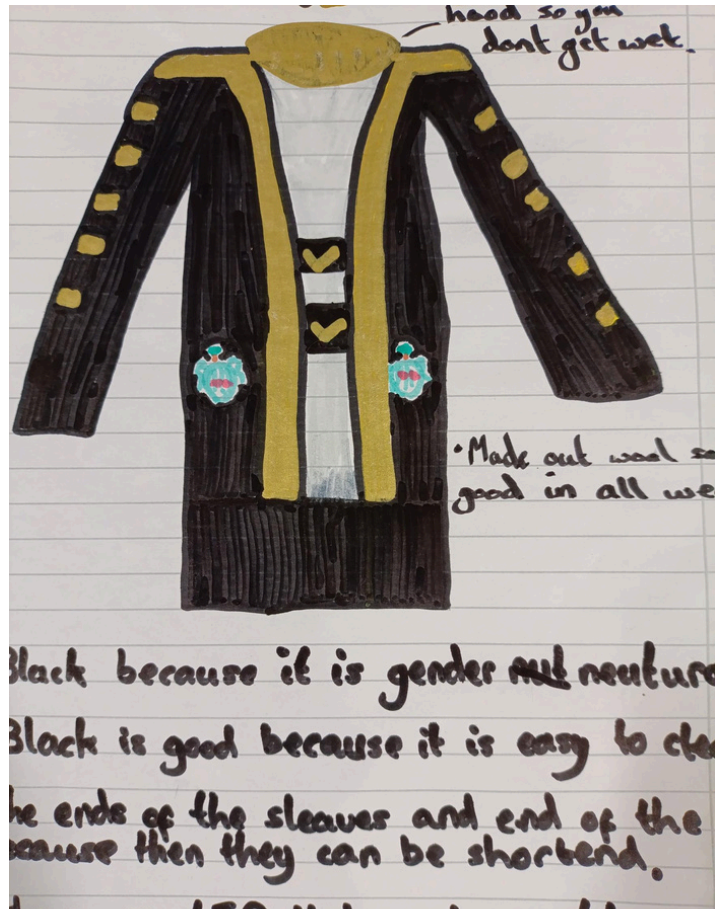 hood so you
dont get wet.
• Made out wool so
good in all we
Black because it is gender neuture
Black is good because it is easy to clea
he ends of the sleaves and end of the
because then they can be shortend.